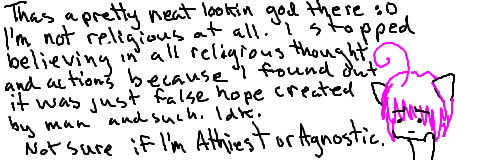 Thas a pretty neat lookin god there :O
I'm not religious at all. I stopped
believing in all religious thought
and actions because I found out
it was just false hope created
by man and such. Idk.
Not sure if I'm Athiest or Agnostic.